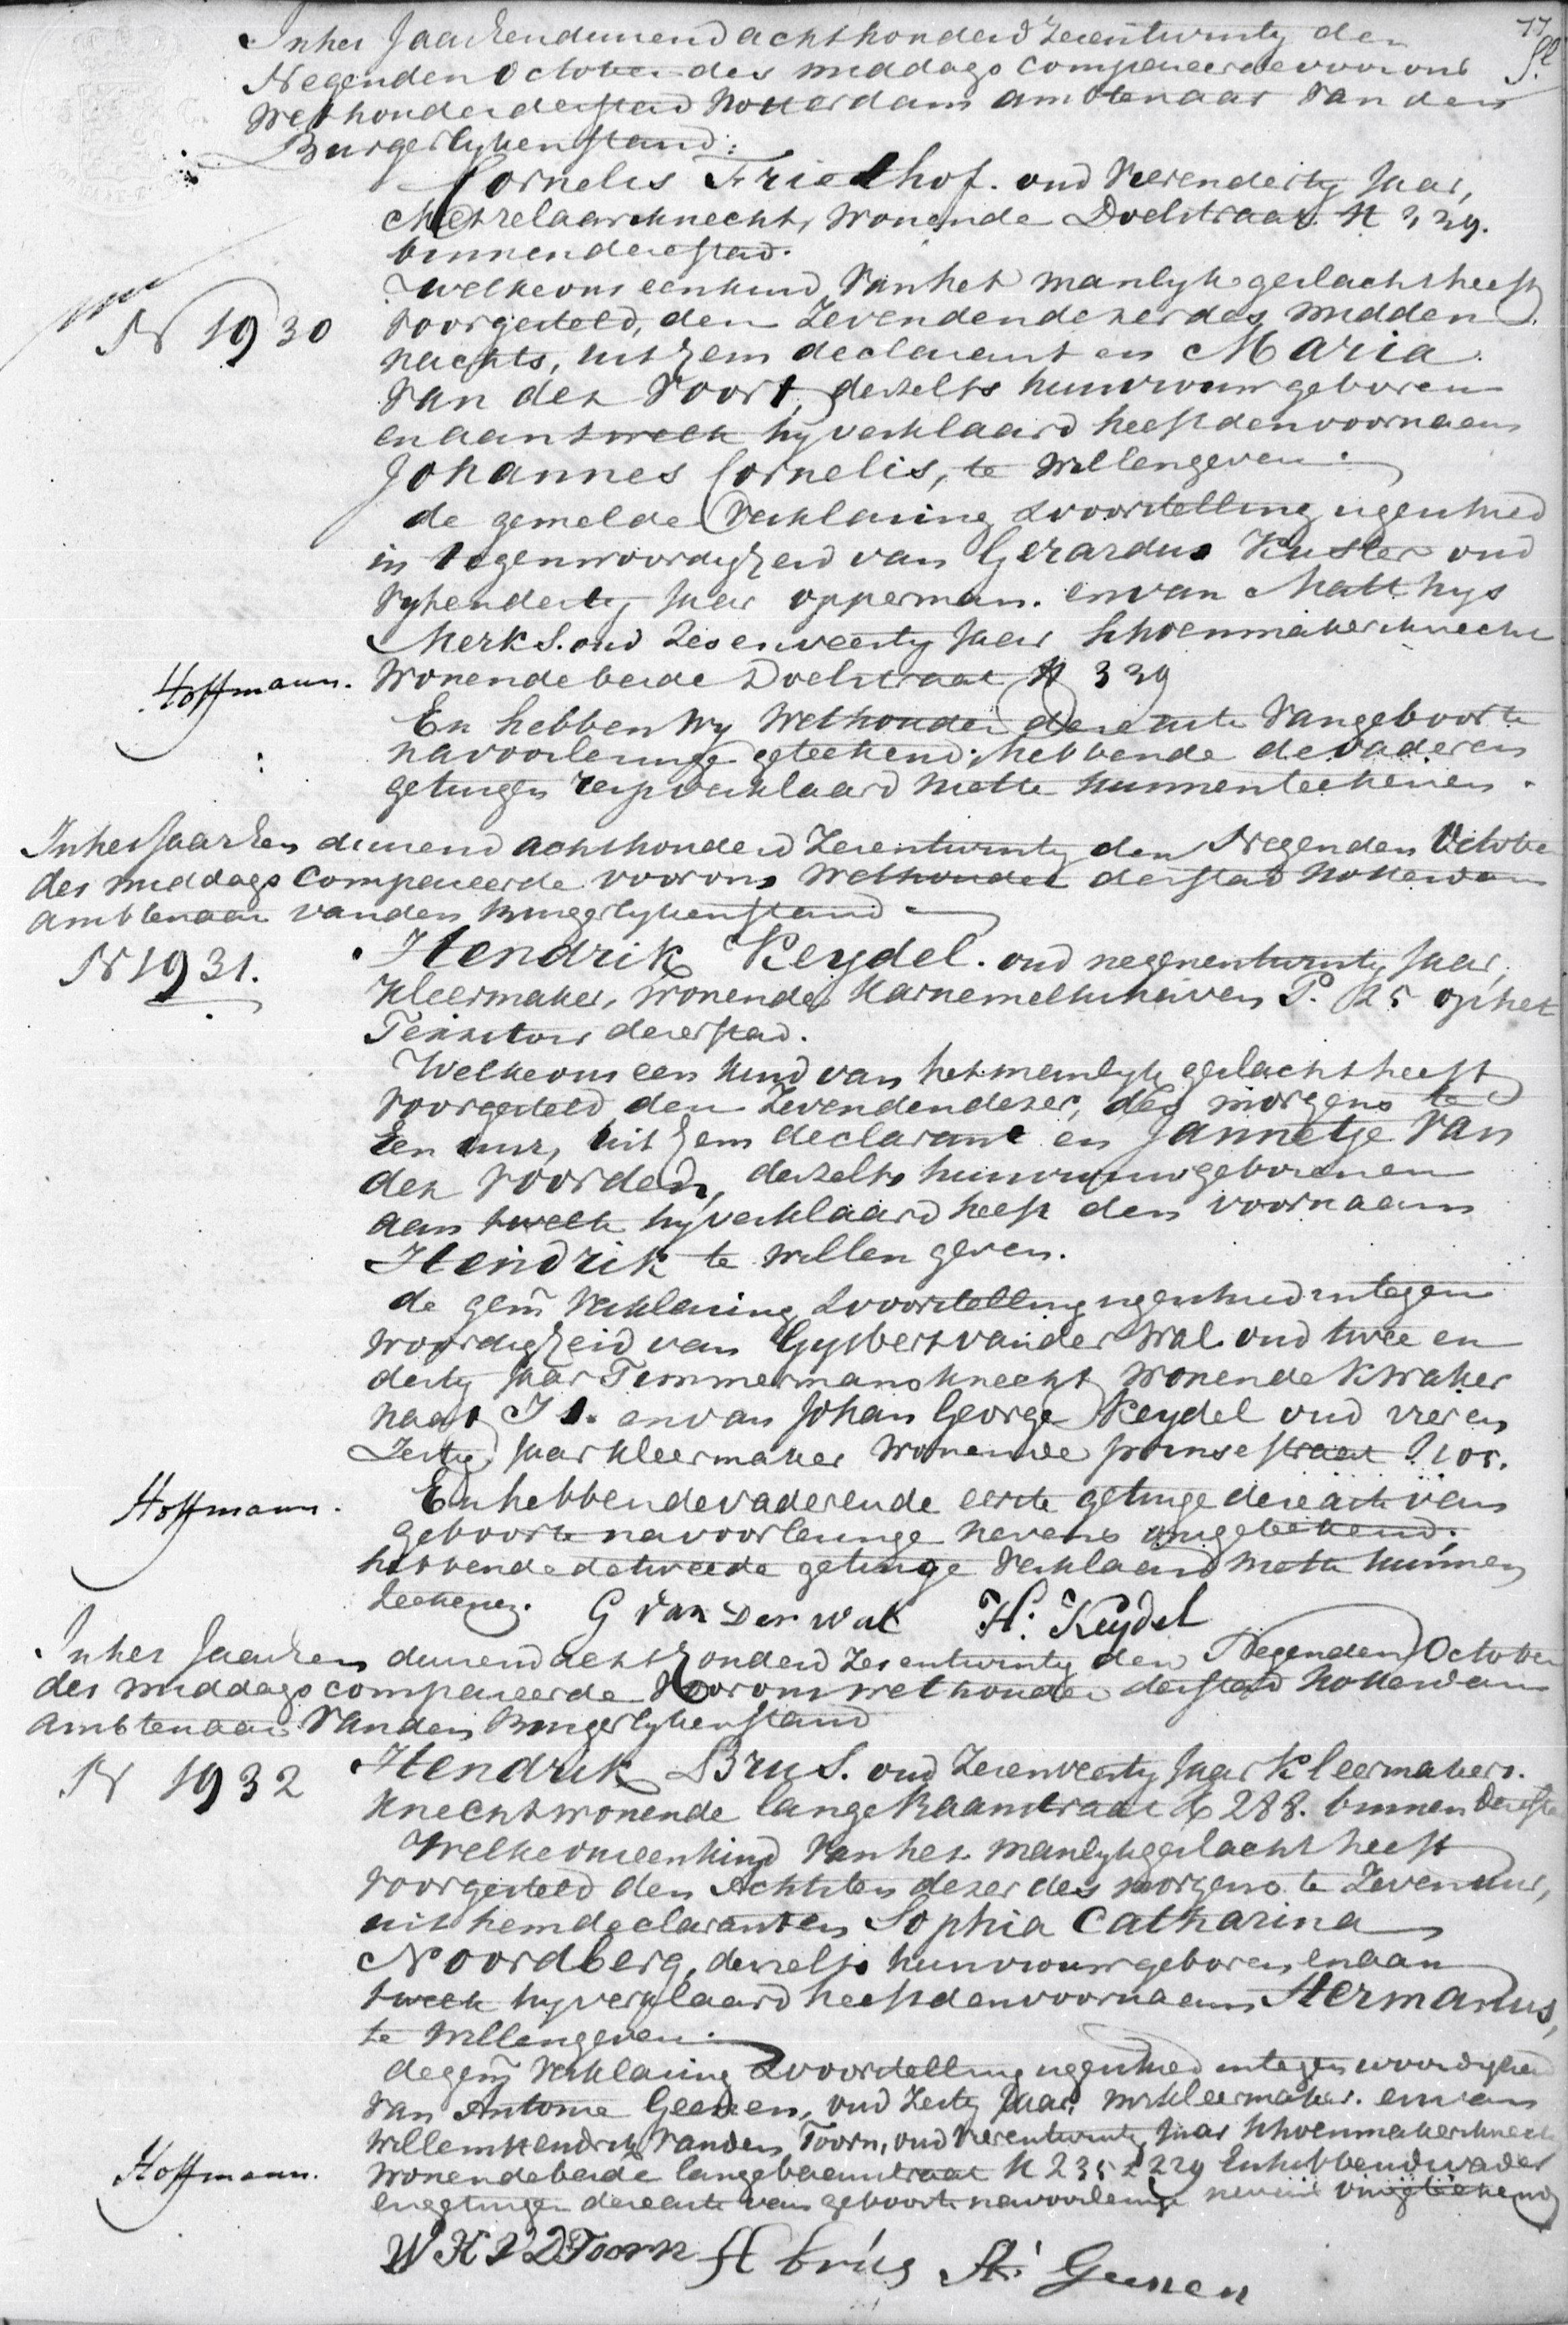 77
In het Jaar Een duizend achthonderd Zevenentwintig den
Negenden October des middags compareerde voor ons
Wethouder der stad Rotterdam ambtenaar van den
Burgerlyken stand:
Cornelis Friedhof. oud Vierendertig Jaar,
Metzelaarsknecht, wonende Doelstraat N 339.
binnen deze stad.
Welke ons een kind van het manlyk geslacht heeft
N 1930
voorgesteld, den Zevenden dezer des midden
nachts, uit hem declarant en Maria
van der Voort, deszelfs huisvrouw geboren
en aan twelk hy verklaard heeft den voornaam
Johannes Cornelis, te willen geven.
de gemelde Verklaring & voorstelling is geschied
in tegenwoordigheid van Gerardus Kuster oud
Vyfendertig Jaar opperman. en van Matthys
Merks. oud Zesenveertig Jaar Schoenmakersknecht
Hoffmann. Wonende beide Doelstraat N 339
En hebben Wy Wethouder deze acte van geboorte
na voorlezing geteekend; hebbende de vader en
getuigen resp verklaard niet te kunnen teekenen.
In het Jaar Een duizend achthonderd Zevenentwintig den Negenden Octobe
des middags Compareerde voor ons Wethouder der stad Rotterdam
ambtenaar van den Burgerlyken stand
N 1931.
Hendrik Keydel. oud negenentwintig Jaar,
Kleermaker, wonende Karnemelkshaven P. 25 op het
Territoir dezer stad.
Welke ons een kind van het manlyk geslacht heeft
voorgesteld den Zevenden dezer, des morgens te
Een uur, uit hem declarant en Jannetje van
der Voorden, deszelfs huisvrouw geboren en
aan twelk hy verklaard heeft den voornaam
Hendrik te willen geven.
de gem Verklaring & voorstelling is geschied in tegen
woordigheid van Gysbert van der Wal oud twee en
dertig Jaar Timmermansknecht wonende Kwaker
naat I 1. en van Johan George Keydel oud vier en
Zestig Jaar kleermaker wonende prinsestraat
Hoffmann.
En hebben de vader en de eerste getuige deze acte van
geboorte na voorlezinge nevens ons geteekend.
hebbende de tweede getuige verklaard niet te kunnen
teekenen. G Van Der Wal H: Keydel
In het Jaar Een duizend achthonderd Zevenentwintig den Negenden October
des middags compareerde voor ons wethouder der stad Rotterdam
ambtenaar van den Burgerlyken stand
N 1932
Hendrik Brus. oud Zevenveertig Jaar Kleermakers.
knecht wonende lange Baanstraat N 288. binnen deze sta
Welke ons een kind van het manlyk geslacht heeft
voorgesteld den Achtsten dezer des morgens te Zeven uur,
uit hem declarant en Sophia Catharina
Noordberg, deszelfs huisvrouw geboren, en aan
twelk hy verklaard heeft den voornaam Hermanus,
te willen geven.
de gem Verklaring & voorstelling is geschied in tegenwoordigheid
van Antonie Geenen, oud Zestig Jaar, Mr kleermaker. en van
Willem Hendrik van den Toorn, oud Vierentwintig Jaar Schoenmakersknecht
Hoffmann.
Wonende beide lange baanstraat N 235 & 229 En hebben de vader
en getuigen deze acte van geboorte na voorlezinge nevens ons geteekend
W H V D Toorn H brús A: Geenen